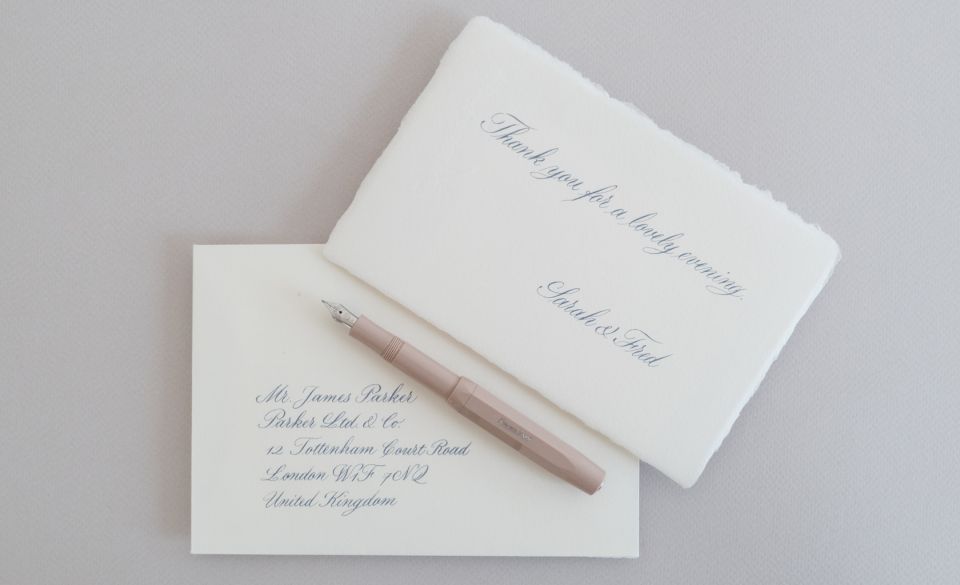 Thank you for a lovely evening.
Sarah & Fred
Mr. James Parker
Parker Ltd. & Co.
12 Tottenham Court Road
London W1F 7NQ
United Kingdom